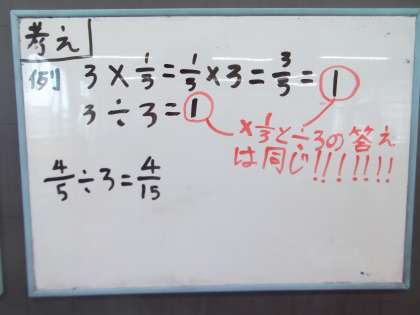 考え
例 3 × 1/3 = 1/3 × 3 = 3/3 = 1
3 ÷ 3 = 1
×1/3と÷3の答え
は同じ!!!!!!!
4/5 ÷ 3 = 4/15